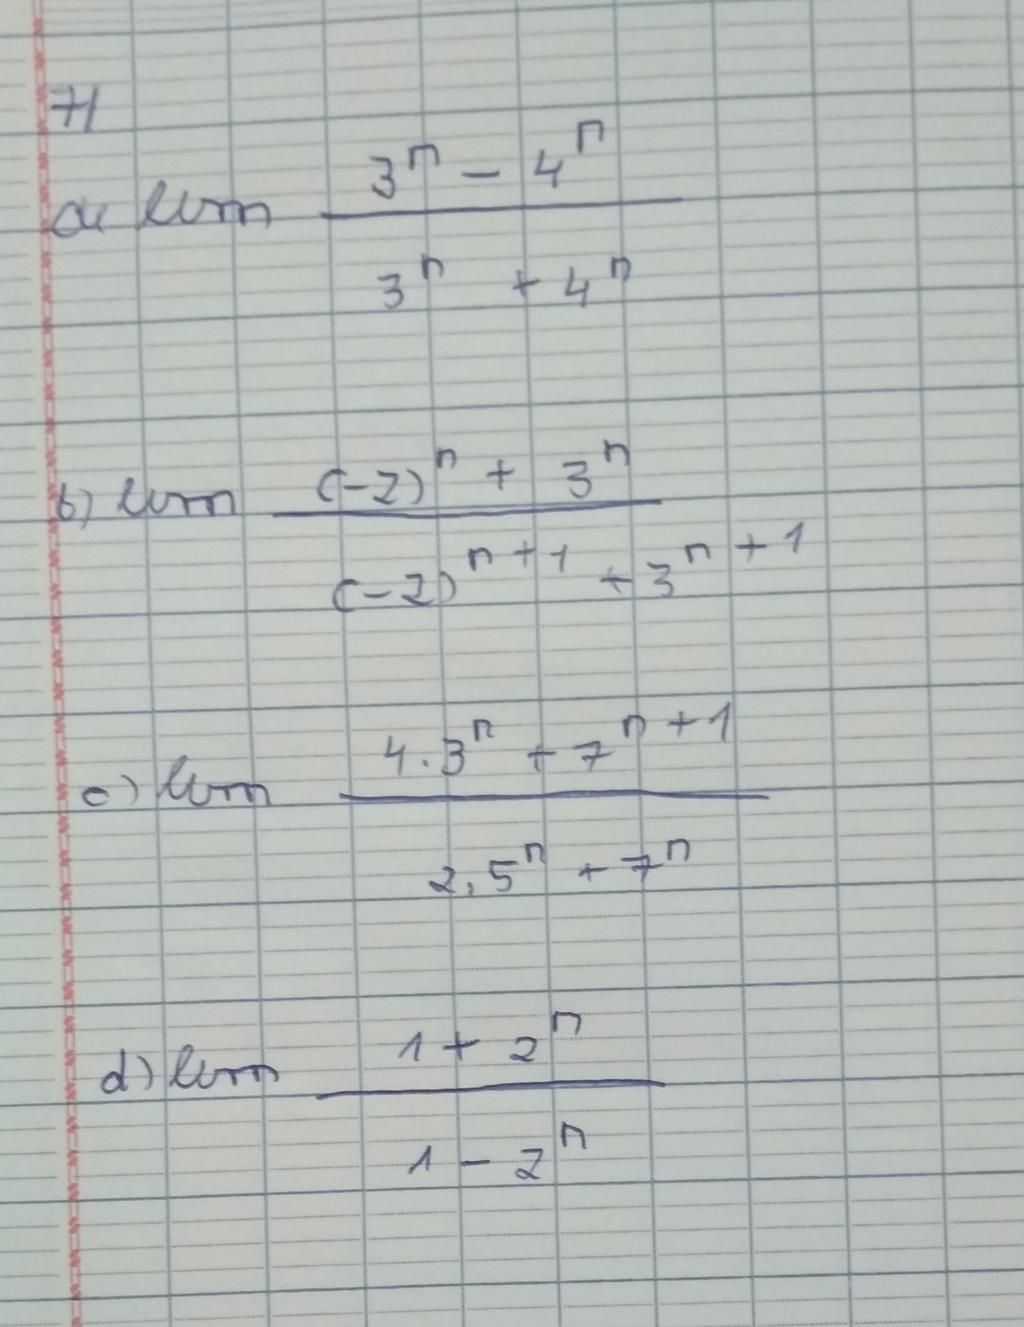 7/
a, lim (3^n - 4^n) / (3^n + 4^n)
b) lim ((-2)^n + 3^n) / ((-2)^(n+1) + 3^(n+1))
c) lim (4.3^n + 7^(n+1)) / (2.5^n + 7^n)
d) lim (1 + 2^n) / (1 - 2^n)